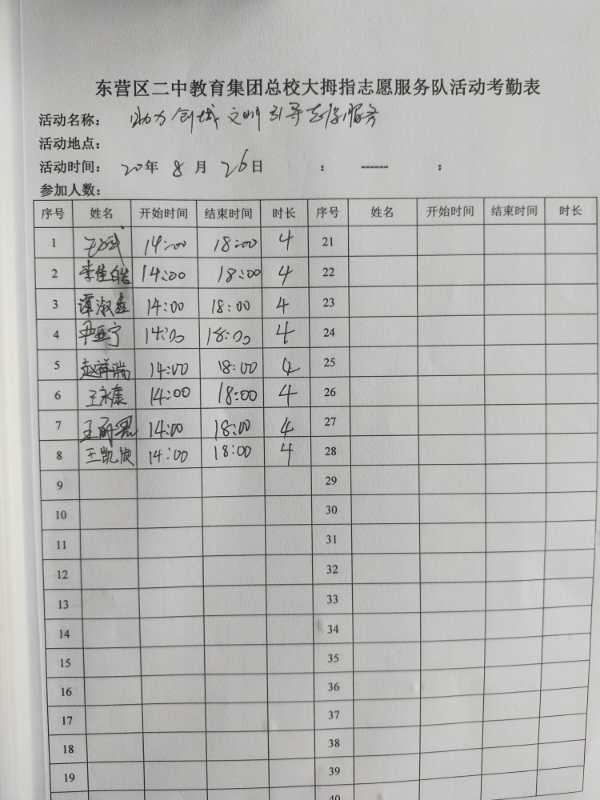 东营区二中教育集团总校大拇指志愿服务队活动考勤表
活动名称: 助力创城 文明引导志愿服务
活动地点:
活动时间: 20年 8 月 26日 : ------ :
参加人数:
序号 姓名 开始时间 结束时间 时长 序号 姓名 开始时间 结束时间 时长
1 14:00 18:00 4 21
2 李佳皓 14:00 18:00 4 22
3 谭淑鑫 14:00 18:00 4 23
4 尹亚宁 14:00 18:00 4 24
5 赵祥瑞 14:00 18:00 4 25
6 王永康 14:00 18:00 4 26
7 14:00 18:00 4 27
8 王凯旋 14:00 18:00 4 28
9 29
10 30
11 31
12 32
13 33
14 34
15 35
16 36
17 37
18 38
19 39
40